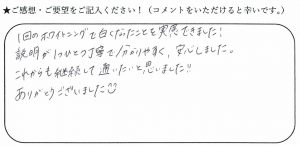 ★ご感想・ご要望をご記入ください！（コメントをいただけると幸いです。）
1回のホワイトニングで白くなったことを実感できました！
説明が1つひとつ丁寧で分かりやすく、安心しました。
これからも継続して通いたいと思いました!!
ありがとうございました